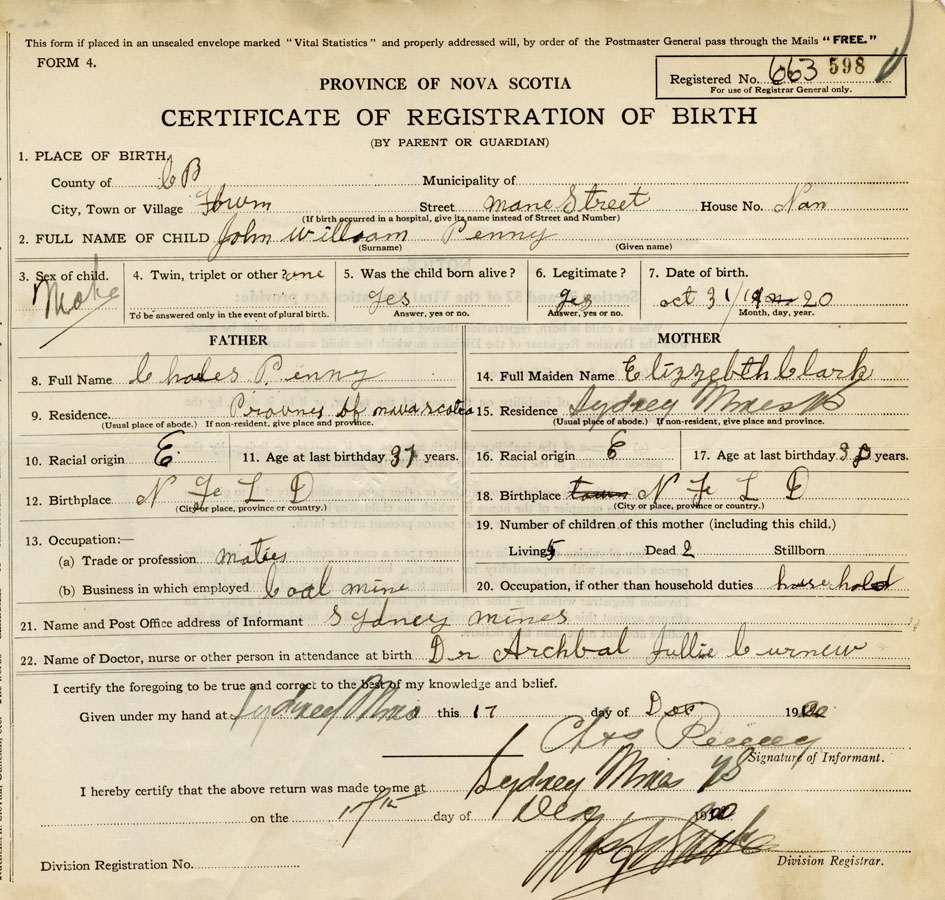 This form if placed in an unsealed envelope marked "Vital Statistics" and properly addressed will, by order of the Postmaster General pass through the Mails "FREE."
FORM 4.
Registered No. 663 598
For use of Registrar General only.
PROVINCE OF NOVA SCOTIA
CERTIFICATE OF REGISTRATION OF BIRTH
(BY PARENT OR GUARDIAN)
1. PLACE OF BIRTH,
County of C B Municipality of
City, Town or Village Town Street mane Street House No. Nan
(If birth occurred in a hospital, give its name instead of Street and Number)
2. FULL NAME OF CHILD John william Penny
(Surname) (Given name)
3. Sex of child. Male 4. Twin, triplet or other? one 5. Was the child born alive? yes 6. Legitimate? yes 7. Date of birth. oct 31/19 20
To be answered only in the event of plural birth. Answer, yes or no. Answer, yes or no. Month, day, year.
FATHER MOTHER
8. Full Name Charles Penny 14. Full Maiden Name Elizzebth Clark
9. Residence. Provnes of nova scotea 15. Residence Sydney Mines NS
(Usual place of abode.) If non-resident, give place and province. (Usual place of abode.) If non-resident, give place and province.
10. Racial origin E. 11. Age at last birthday 37 years. 16. Racial origin E 17. Age at last birthday 38 years.
12. Birthplace N Fe L D 18. Birthplace N Fe L D
(City or place, province or country.) (City or place, province or country.)
13. Occupation:— 19. Number of children of this mother (including this child.)
(a) Trade or profession Living 5 Dead 2 Stillborn
(b) Business in which employed Coal mine 20. Occupation, if other than household duties house hold
21. Name and Post Office address of Informant Sydney mines
22. Name of Doctor, nurse or other person in attendance at birth Dr Archbal Jullie Curnew
I certify the foregoing to be true and correct to the best of my knowledge and belief.
Given under my hand at Sydney Mines this 17 day of Dec 1920
Chas Penny
Signature of Informant.
I hereby certify that the above return was made to me at Sydney Mines NS
on the 17th day of Dec 1920
Division Registration No. Division Registrar.